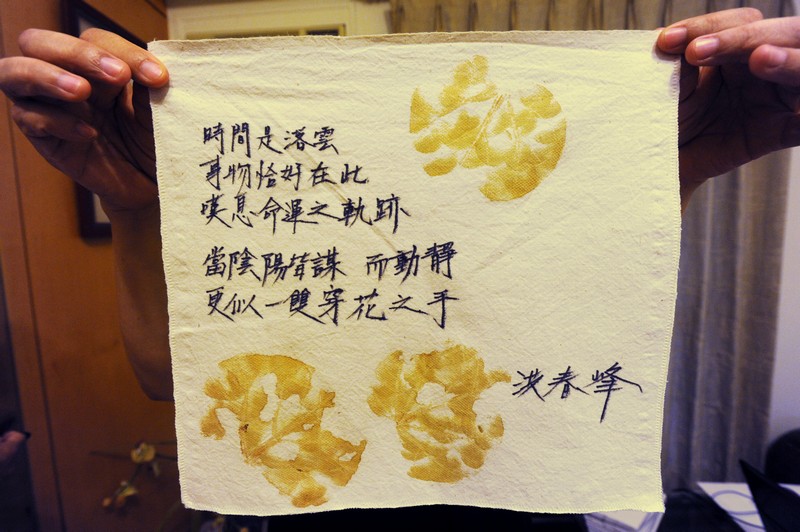 時間是落雲
事物恰好在此
嘆息命運之軌跡
當陰陽背謀 而動靜
更似一雙穿花之手
洪春峰